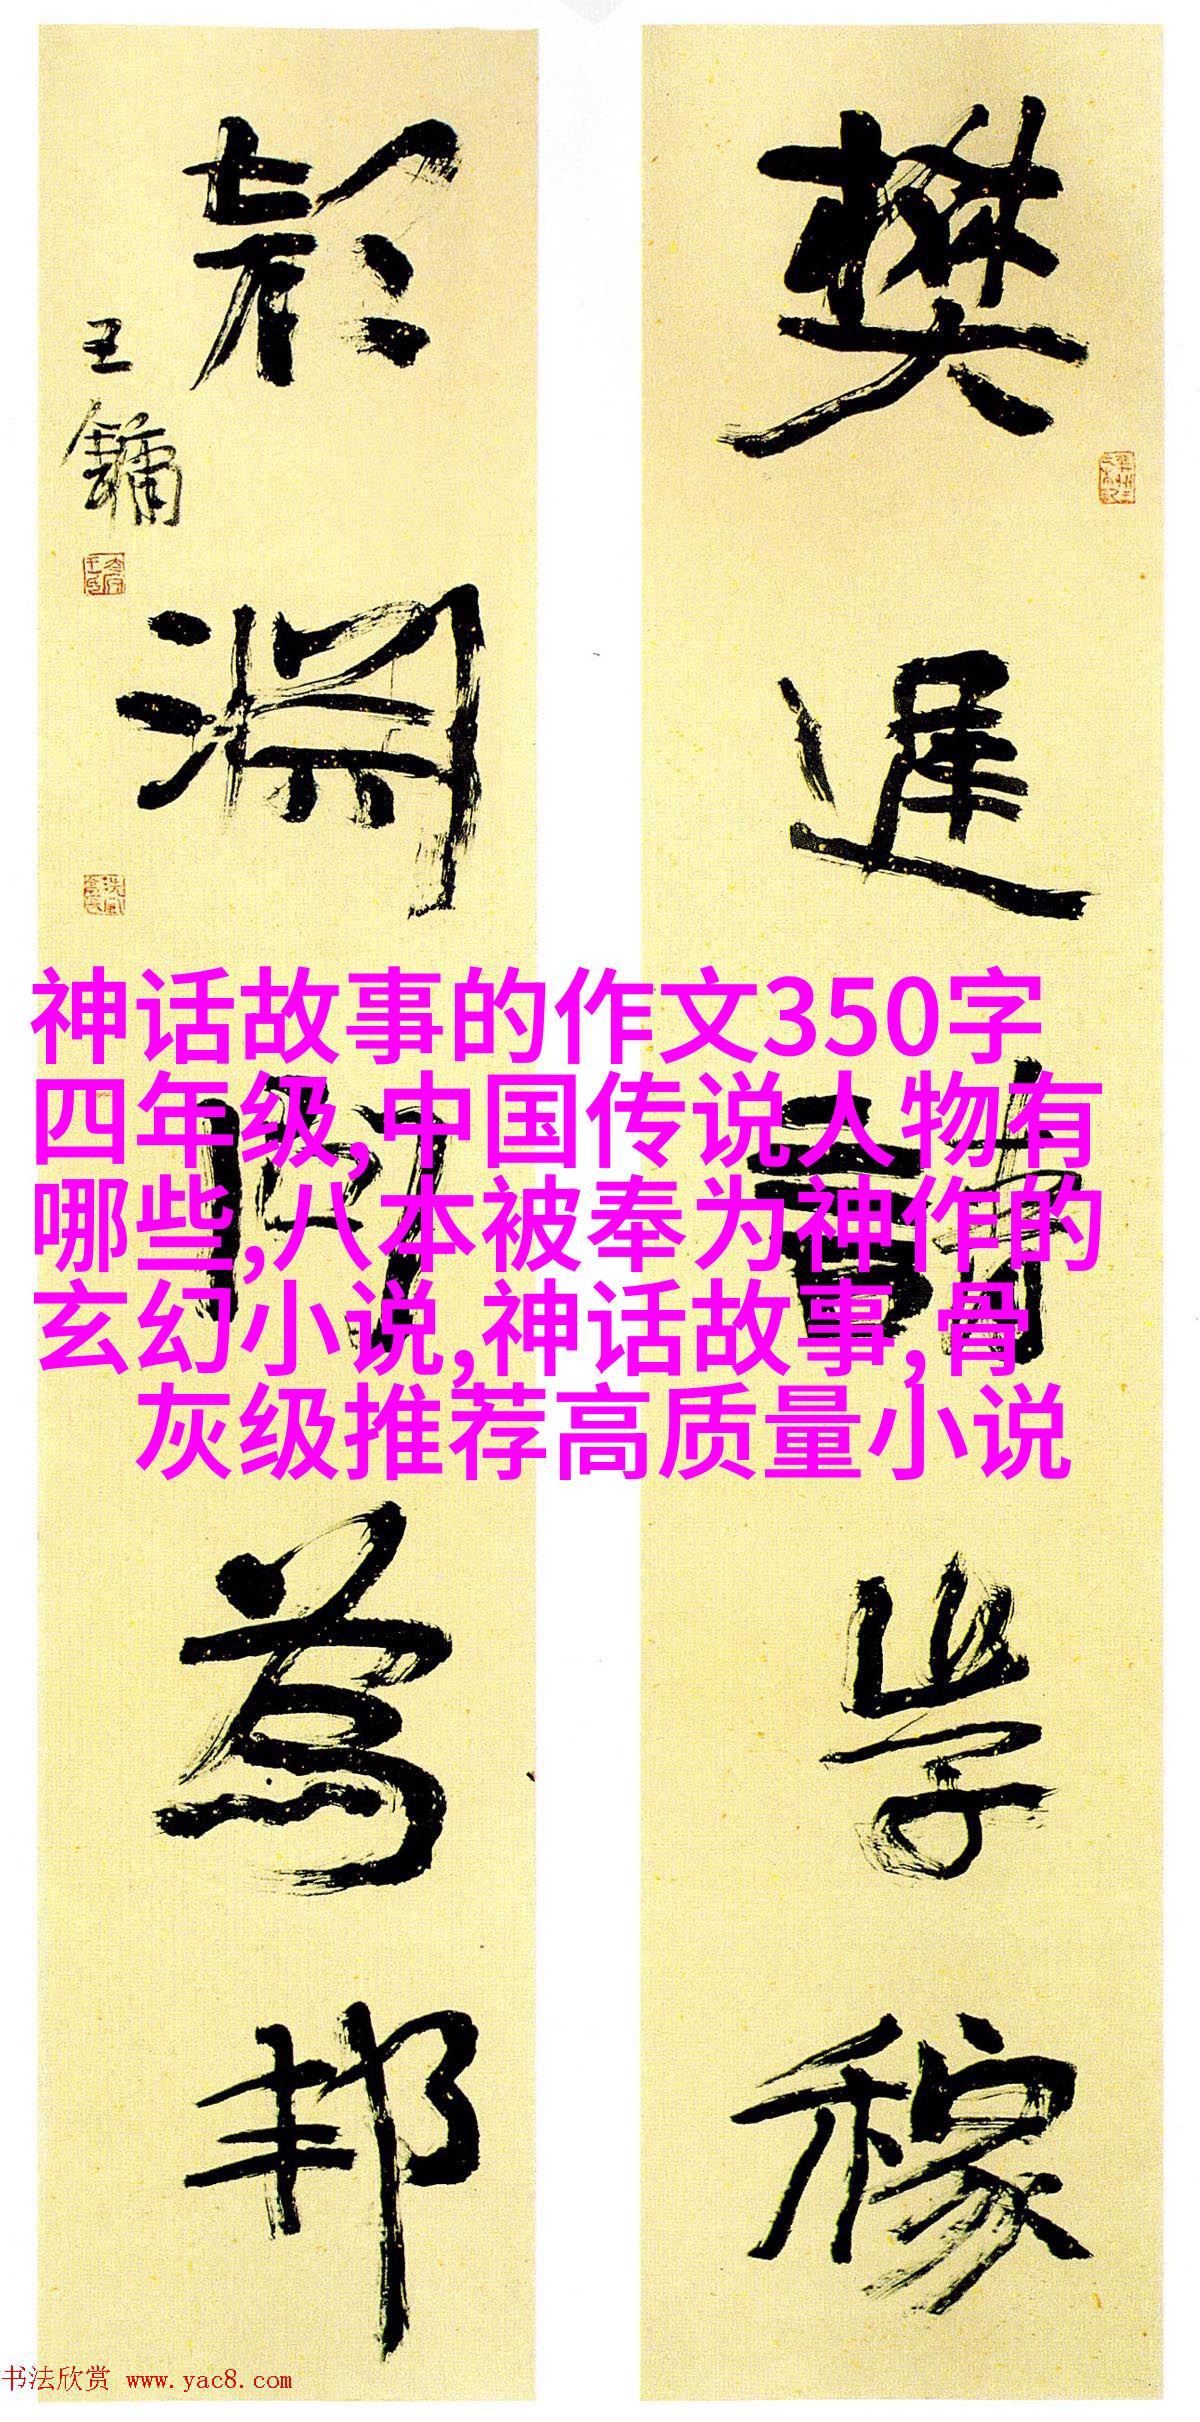 樊遲請學稼
顏淵問為邦
王鏞
神话故事的作文350字
四年级,中国传说人物有
哪些,八本被奉为神作的
玄幻小说,神话故事,骨
灰级推荐高质量小说
书法欣赏 www.yac8.com